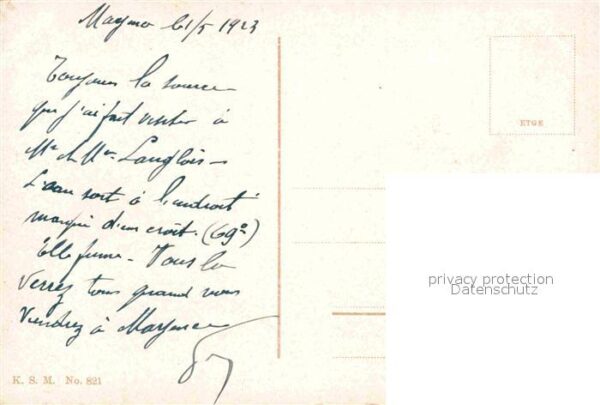 Mayence le 1/5 1923
Toujours la source
que j'ai fait visiter à
Mr & Mme Langlois -
L'eau sort à l'endroit
marqué d'une croix. (69°)
Elle fume - Vous la
verrez tous quand vous
viendrez à Mayence
ETGE
privacy protection
Datenschutz
K. S. M. No. 821